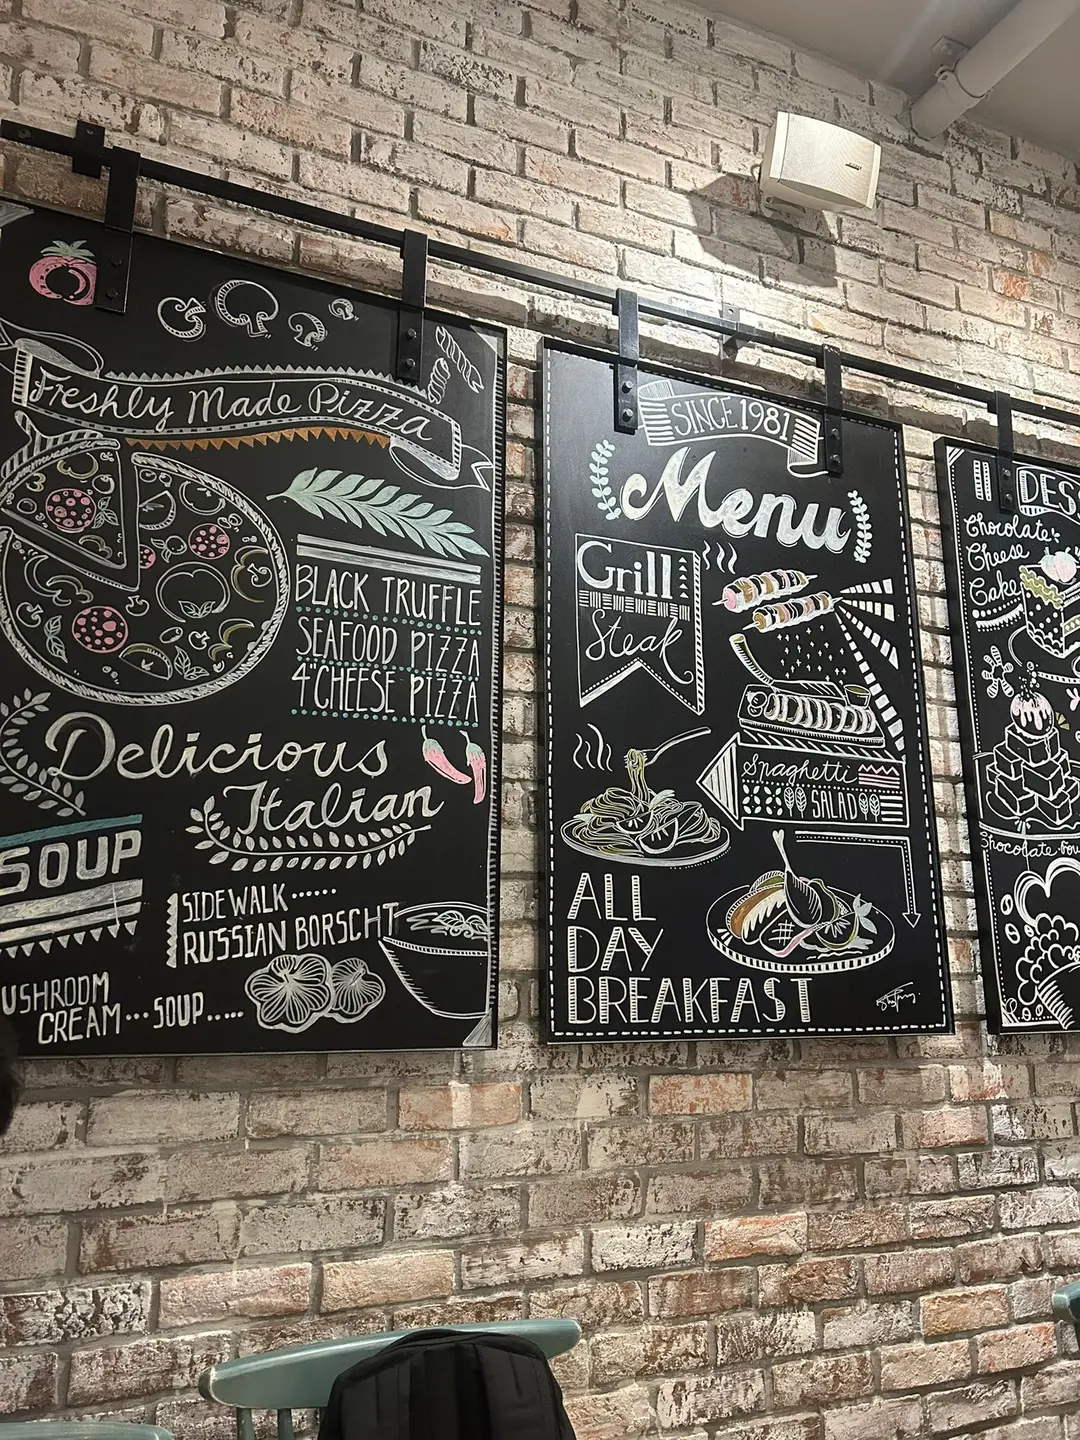 Freshly Made Pizza
BLACK TRUFFLE
SEAFOOD PIZZA
4"CHEESE PIZZA
Delicious
Italian
SOUP
SIDEWALK ......
RUSSIAN BORSCHT
USHROOM
CREAM...SOUP.....
SINCE 1981
Menu
Grill
Steak
Spaghetti
SALAD
ALL
DAY
BREAKFAST
DES
Chocolate
Cheese
Cake
BOSE